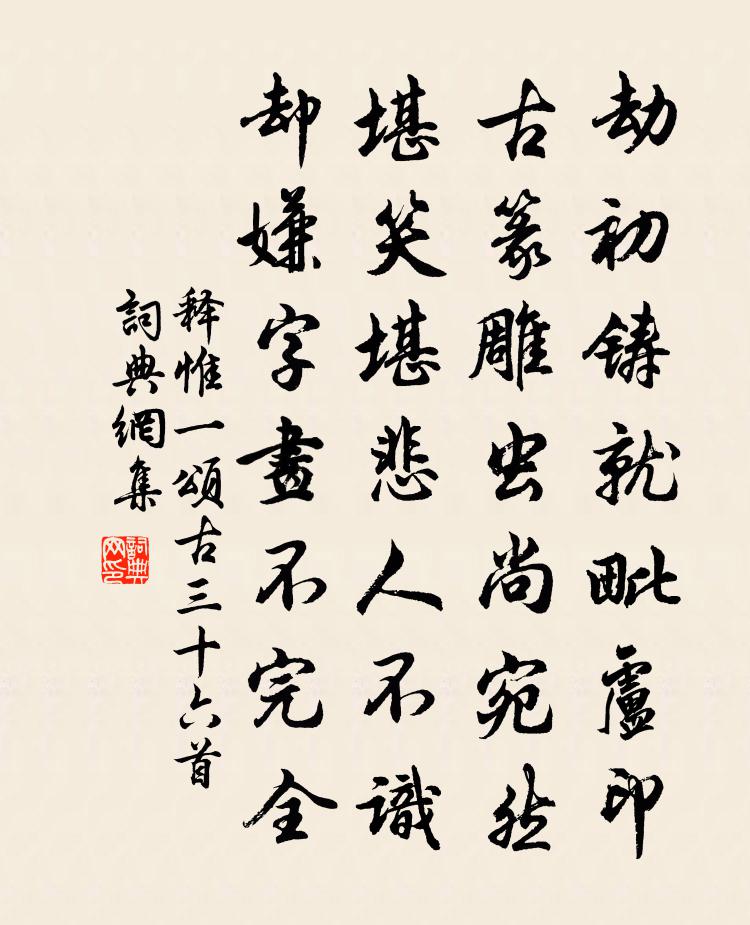 劫初铸就毗盧印
古篆雕虫尚宛然
堪笑堪悲人不識
却嫌字畫不完全
释惟一頌古三十六首
詞典網集
詞典网印